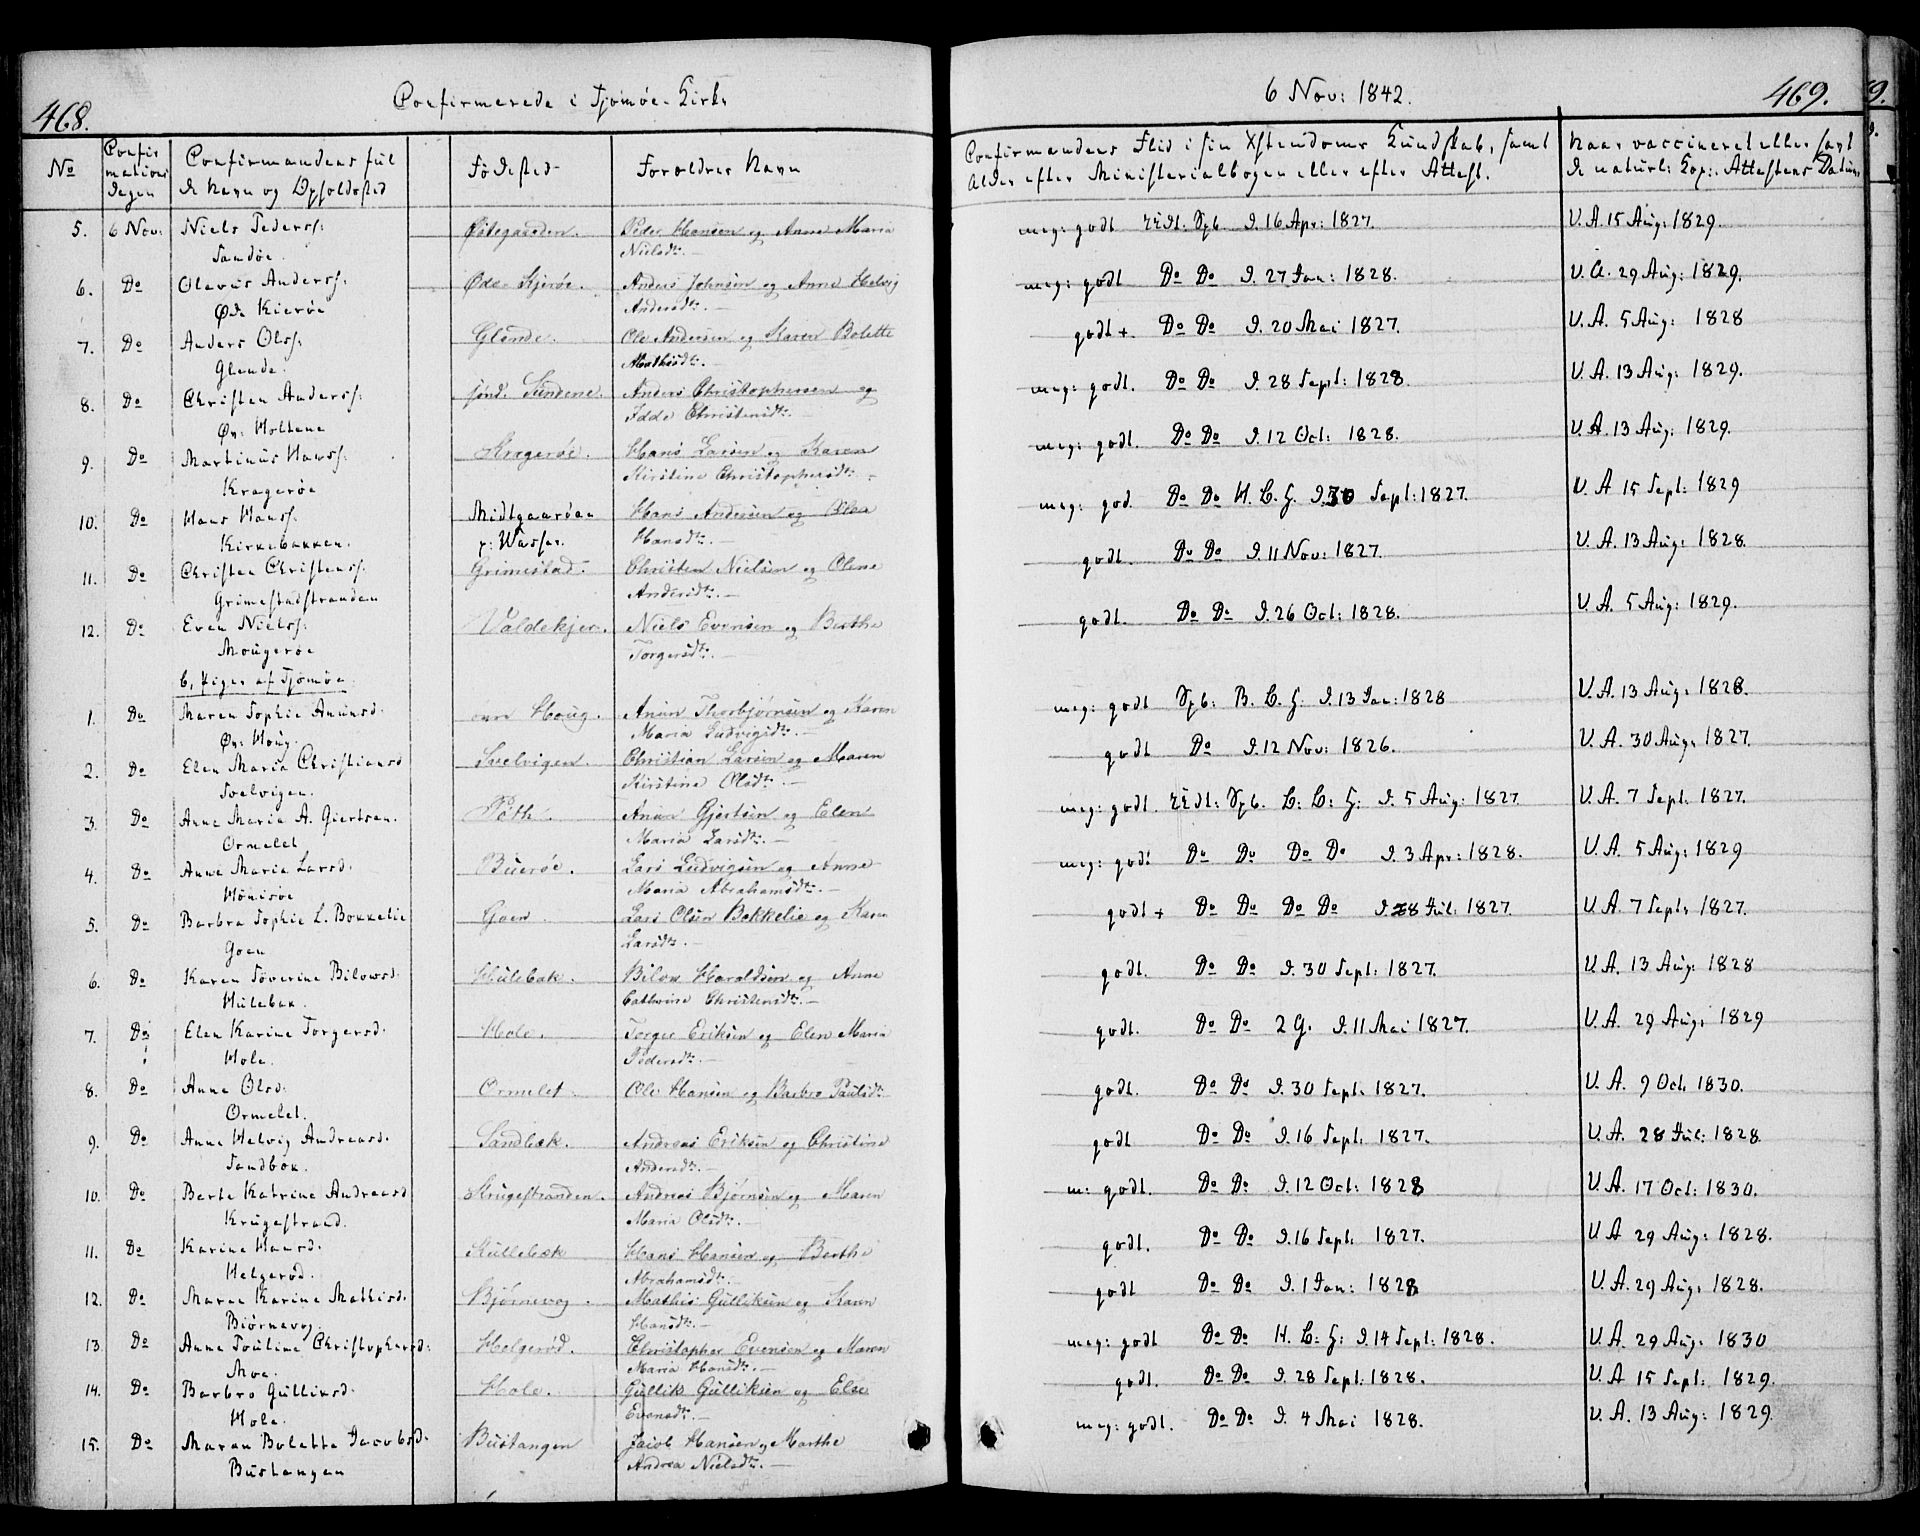 468.
Confirmerede i Tjømøe Kirke
No
Confirmationsdagen
Confirmandens fulde Navn og Opholdssted
Fødested
Foreldres Navn
5. 6 Nov: Niels Peders: Sandøe. Østegaarden. Peder Hansen og Anne Maria Nielsdt:
6. Do Olavus Anders: Øde Kierøe Øde Kjerøe. Anders Johnsen og Anne Helvig Andersdt:
7. Do Anders Ols: Glende. Glende. Ole Andersen og Karen Bolette Mathisdt:
8. Do Christen Anders: Øv: Holtene sønd: Sundene. Anders Christophersen og Idde Christensdt:
9. Do Martinus Hans: Kragerøe Kragerøe. Hans Larsen og Karen Kirstine Christophersdt:
10. Do Hans Hans: Kirkebakken. Midtgaarden Hans Andersen og Olea Hansdt:
11. Do Christen Christens: Grimestadstranden Grimestad Christen Nielsen og Olene Andersdt:
12. Do Even Niels: Mougerøe Valdekjer. Niels Evensen og Berthe Torgersdt:
b, Piger af Tjømøe
1. Do Maren Sophie Anunsd: Øv: Houg. ovre Houg. Anun Thorbjørnsen og Karen Maria Ludvigsdt:
2. Do Elen Maria Christiansd Svelvigen. Svelvigen. Christian Larsen og Maren Kirstine Olsdt:
3. Do Anne Maria A. Giertsen. Ormelet Røth. Anun Gjertsen og Elen Maria Larsdt:
4. Do Anne Maria Larsd: Hønisøe Buerøe. Lars Ludvigsen og Anne Maria Abrahamsdt:
5. Do Barbra Sophie L. Bekkelie Goen Goen. Lars Olsen Bekkelie og Karen Larsdt:
6. Do Karen Severine Bilowsd. Hulebak. Hulebak. Bilow Haraldsen og Anne Cathrine Christensdt:
7. Do Elen Karine Torgersd. Hole. Hole. Torger Eriksen og Elen Maria Pedersdt:
8. Do Anne Olsd: Ormelet. Ormelet. Ole Hansen og Barbro Paulsdt:
9. Do Anne Helvig Andreasd. Sandbek. Sandbæk. Andreas Eriksen og Christine Andersdt:
10. Do Berte Katrine Andreasd Krugestrand. Krugestranden. Andreas Bjørnsen og Maren Maria Olsdt:
11. Do Karine Hansd. Helgerød. Kullebæk Hans Hansen og Berthe Abrahamsdt:
12. Do Maren Karine Mathisd. Biørnevog. Bjørnevog. Mathis Gulliksen og Karen Hansdt:
13. Do Anne Pouline Christophersd: Moe. Helgerød. Christopher Evensen og Maren Maria Hansdt:
14. Do Barbro Gulliksd: Hole. Hole. Gullik Gulliksen og Else Evensdt:
15. Do Maren Bolette Jacobsd: Bustangen Bustangen Jacob Hansen og Marthe Andrea Nielsdt:
6 Nov: 1842. 469.
Confirmandens Flid i sin Xstendoms Kundskab, samt
Alder efter Ministerialbogen eller efter Attest.
Naar vaccineret eller havt
de naturl: Kop: Attestens Datum
meg: godt 16 Apr: 1827. V. A. 15 Aug: 1829.
meg: godt Do Do 27 Jan: 1828. V. A. 29 Aug: 1829.
godt + Do Do 20 Mai 1827. V. A. 5 Aug: 1828
meg: godt. Do Do 28 Sept: 1828. V. A. 13 Aug: 1829.
meg: godt. Do Do 12 Oct: 1828. V. A. 13 Aug: 1829.
meg: god. Do Do 30 Sept: 1827. V. A 15 Sept: 1829
godt. Do Do 11 Nov: 1827. V. A. 13 Aug: 1828.
godt. Do Do 26 Oct: 1828. V. A. 5 Aug: 1829.
meg: godt 13 Jan: 1828 V. A. 13 Aug: 1828.
godt Do 12 Nov: 1826. V. A. 30 Aug: 1827.
meg: godt. 5 Aug: 1827 V. A. 7 Sept: 1827.
meg: godt Do Do Do Do 3 Apr: 1828. V. A. 5 Aug: 1829
godt + Do Do Do Do 28 Jul: 1827. V. A. 7 Sept: 1827.
godt. Do Do 30 Sept: 1827. V. A. 13 Aug: 1828
godt. Do Do 2 G. 11 Mai 1827. V. A. 29 Aug: 1829
godt. Do Do 30 Sept. 1827. V. A. 9 Oct. 1830.
godt Do Do 16 Sept. 1827. V. A. 28 Jul: 1828.
m: godt. Do Do 12 Oct: 1828 V. A. 17 Oct: 1830.
godt. Do Do 16 Sept. 1827. V. A 29 Aug: 1828.
godt Do Do 1 Jan: 1828 V. A. 29 Aug: 1828.
meg: godt Do Do 14 Sept: 1828. V. A. 29 Aug: 1830
godt. Do Do 28 Sept. 1828. V. A 15 Sept. 1829.
meg: godt. Do Do 4 Mai 1828. V. A. 13 Aug: 1829.